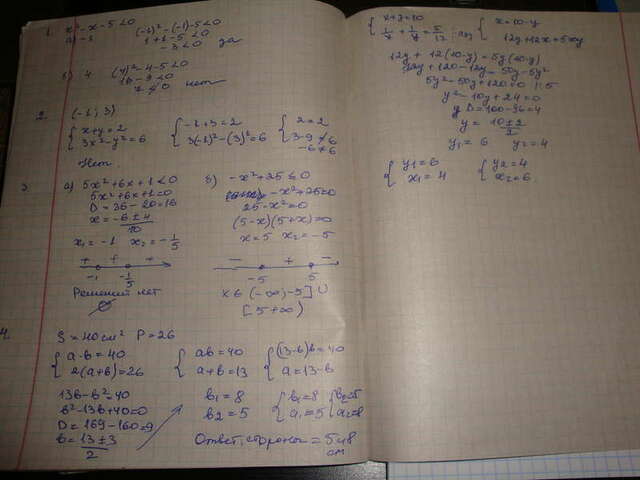 1. x²-x-5<0
a) -1 (-1)²-(-1)-5<0
1+1-5<0
-3<0 да
б) 4 (4)²-4-5<0
16-9<0
7<0 нет
2. (-1; 3)
{ x+y=2
3x²-y²=6
{ -1+3=2
3(-1)²-(3)²=6
{ 2=2
3-9≠6
-6≠6
Нет.
3. а) 5x²+6x+1<0
5x²+6x+1=0
D=36-20=16
x=-6±4/10
x₁=-1 x₂=-1/5
+ + +
-1 -1/5
Решений нет
∅
б) -x²+25≤0
-x²+25=0
25-x²=0
(5-x)(5+x)=0
x=5 x₂=-5
- + -
-5 5
x∈(-∞;-5]∪
[5+∞)
4. S=40см² P=26
{ a·b=40
2(a+b)=26
{ ab=40
a+b=13
{ (13-b)b=40
a=13-b
13b-b²=40
b²-13b+40=0
D=169-160=9
b=13±3/2
b₁=8
b₂=5
{ b₁=8
a₁=5
{ b₂=5
a=8
Ответ, стороны=5и8
см
{ x+y=10
1/x+1/y=5/12
{ x=10-y
12y+12x=5xy
12y+12(10-y)=5y(10-y)
12y+120-12y=50y-5y²
5y²-50y+120=0 |:5
y²-10y+24=0
D=100-96=4
y=10±2/2
y₁=6 y₂=4
{ y₁=6
x₁=4
{ y₂=4
x₂=6.